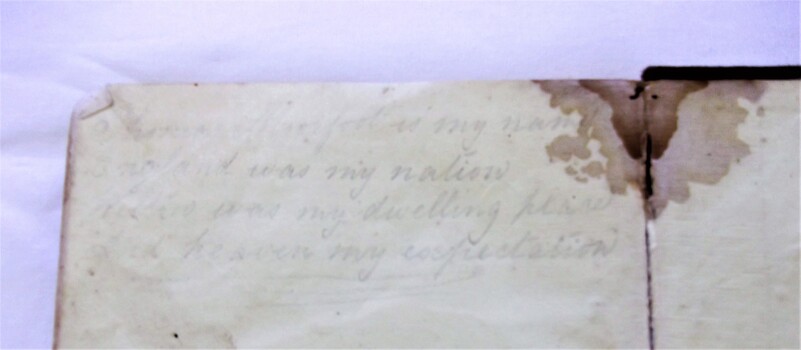 is my name
England was my nation
was my dwelling place
And heaven my expectation